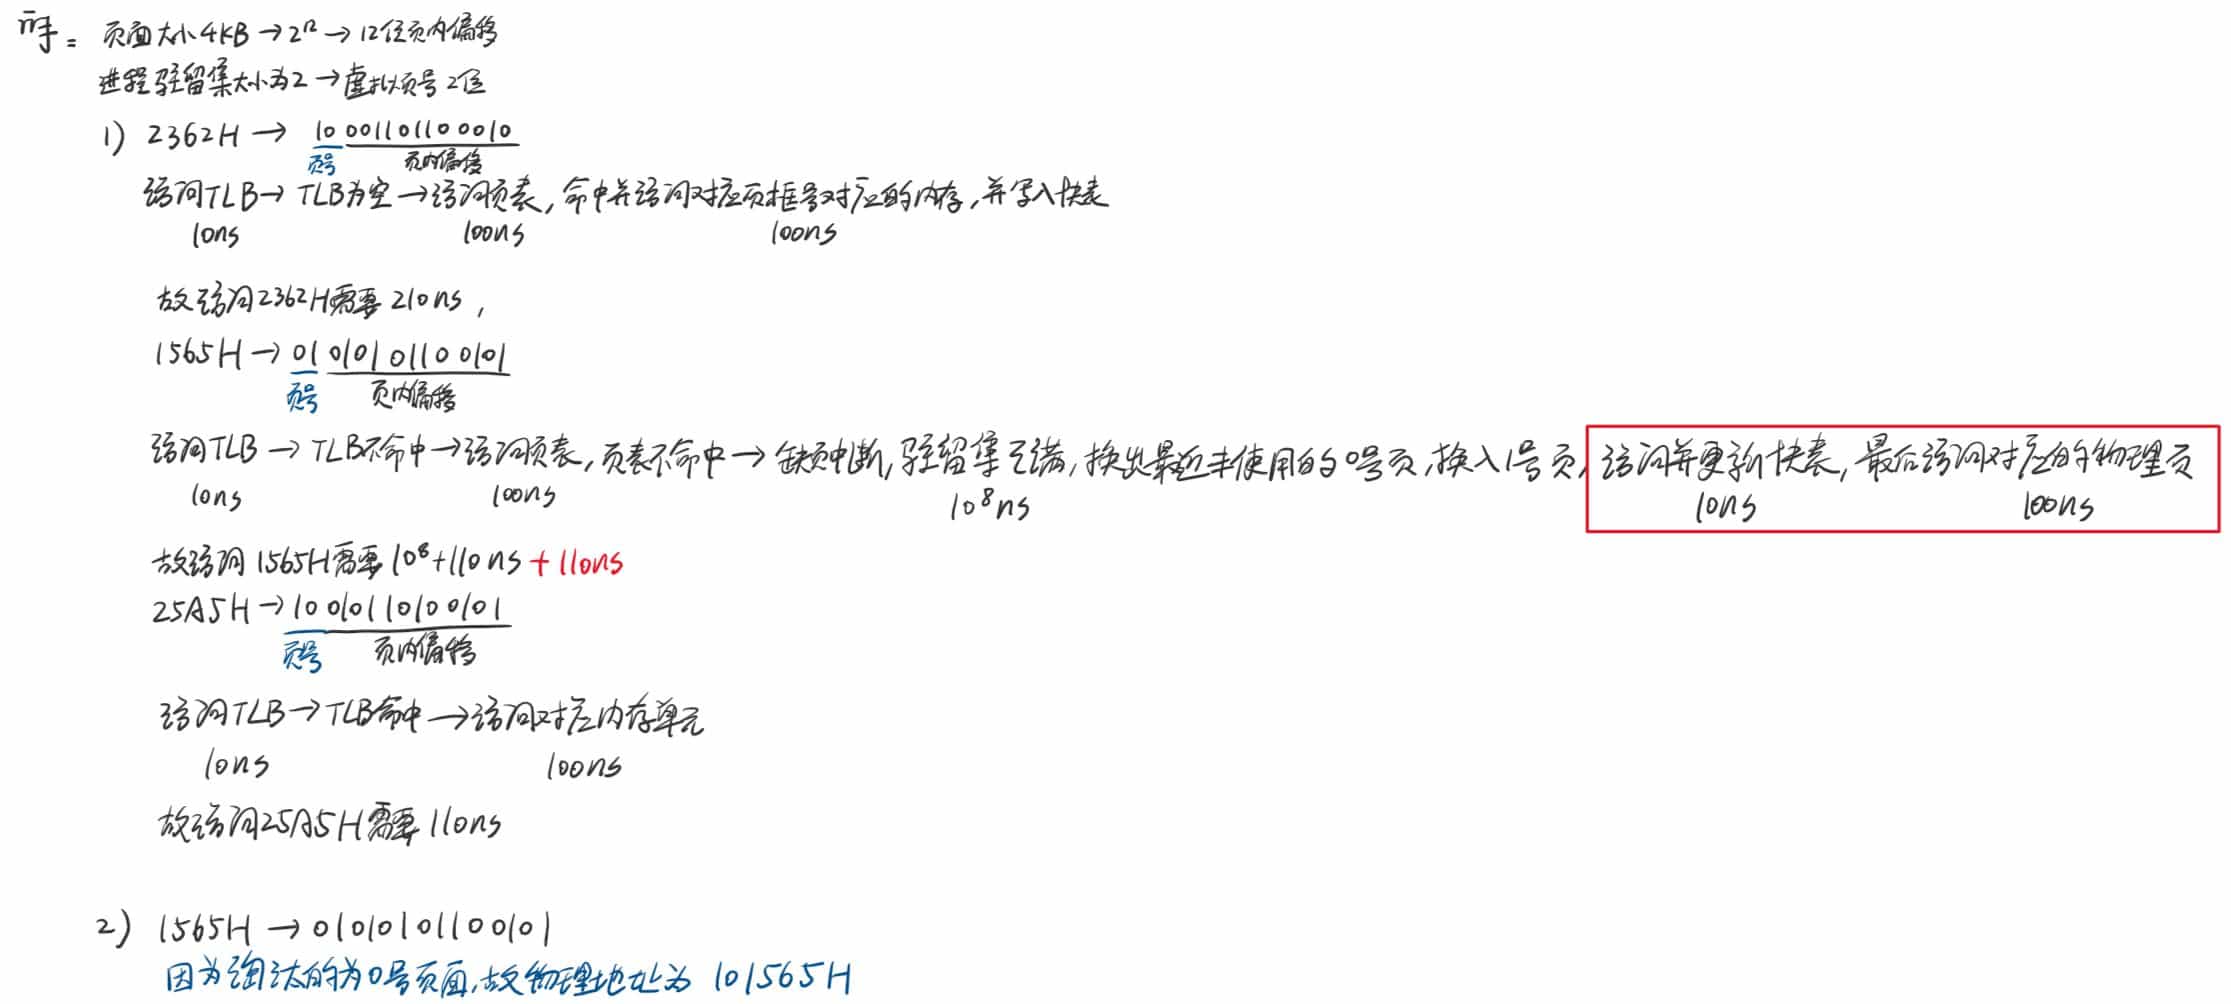 解：页面大小4KB→2¹²→12位页内偏移
进程驻留集大小为2→虚拟页号2位
1) 2362H → 10 001101100010
页号 页内偏移
访问TLB→TLB为空→访问页表,命中并访问对应页框号对应的内存,并写入快表
10ns 100ns 100ns
故访问2362H需要210ns,
1565H→01 010101100101
页号 页内偏移
访问TLB→TLB不命中→访问页表,页表不命中→缺页中断,驻留集已满,换出最近未使用的0号页,换入1号页,访问并更新快表,最后访问对应的物理页
10ns 100ns 10⁸ns 10ns 100ns
故访问1565H需要10⁸+110ns+110ns
25A5H→10010110100101
页号 页内偏移
访问TLB→TLB命中→访问对应内存单元
10ns 100ns
故访问25A5H需要110ns
2) 1565H→01010101100101
因为淘汰的为0号页面,故物理地址为 101565H